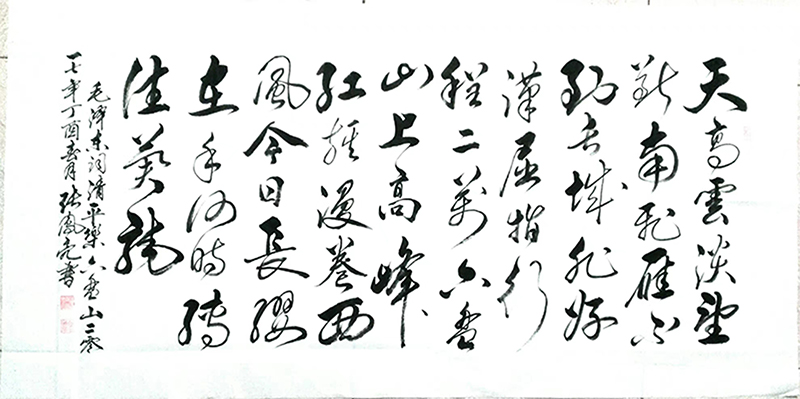 天高雲淡望
断南飛雁不
到长城非好
漢屈指行
程二萬六盤
山上高峰
紅旗漫卷西
風今日長纓
在手何時縛
住蒼龍
毛澤東詞清平樂六盤山二零
一七年丁酉春月張鳳亮書